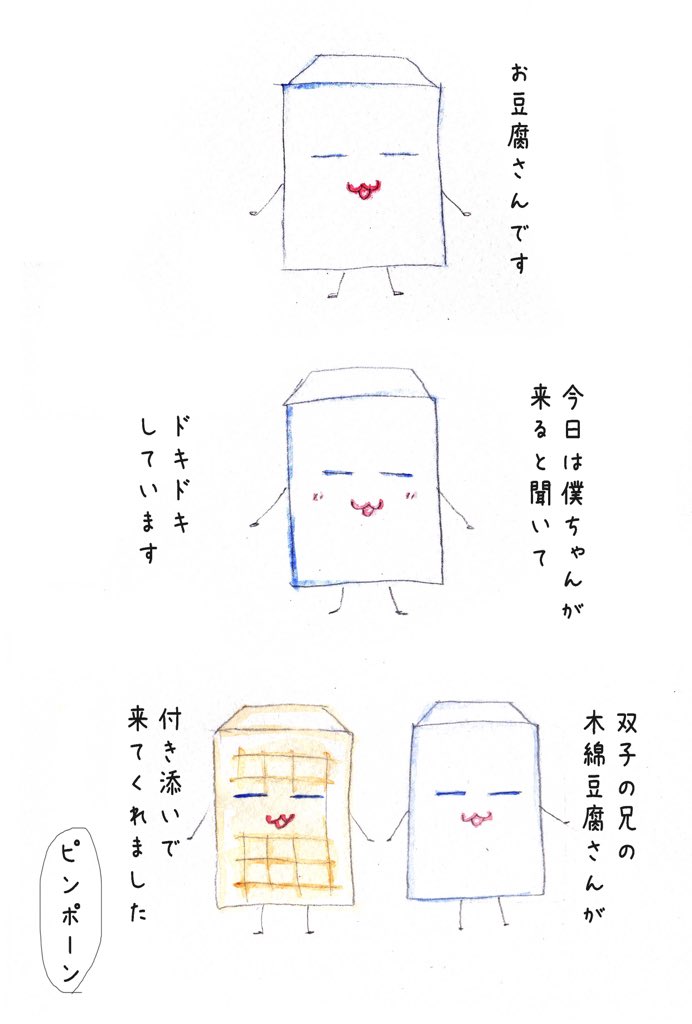 お豆腐さんです
今日は僕ちゃんが
来ると聞いて
ドキドキ
しています
双子の兄の
木綿豆腐さんが
付き添いで
来てくれました
ピンポーン